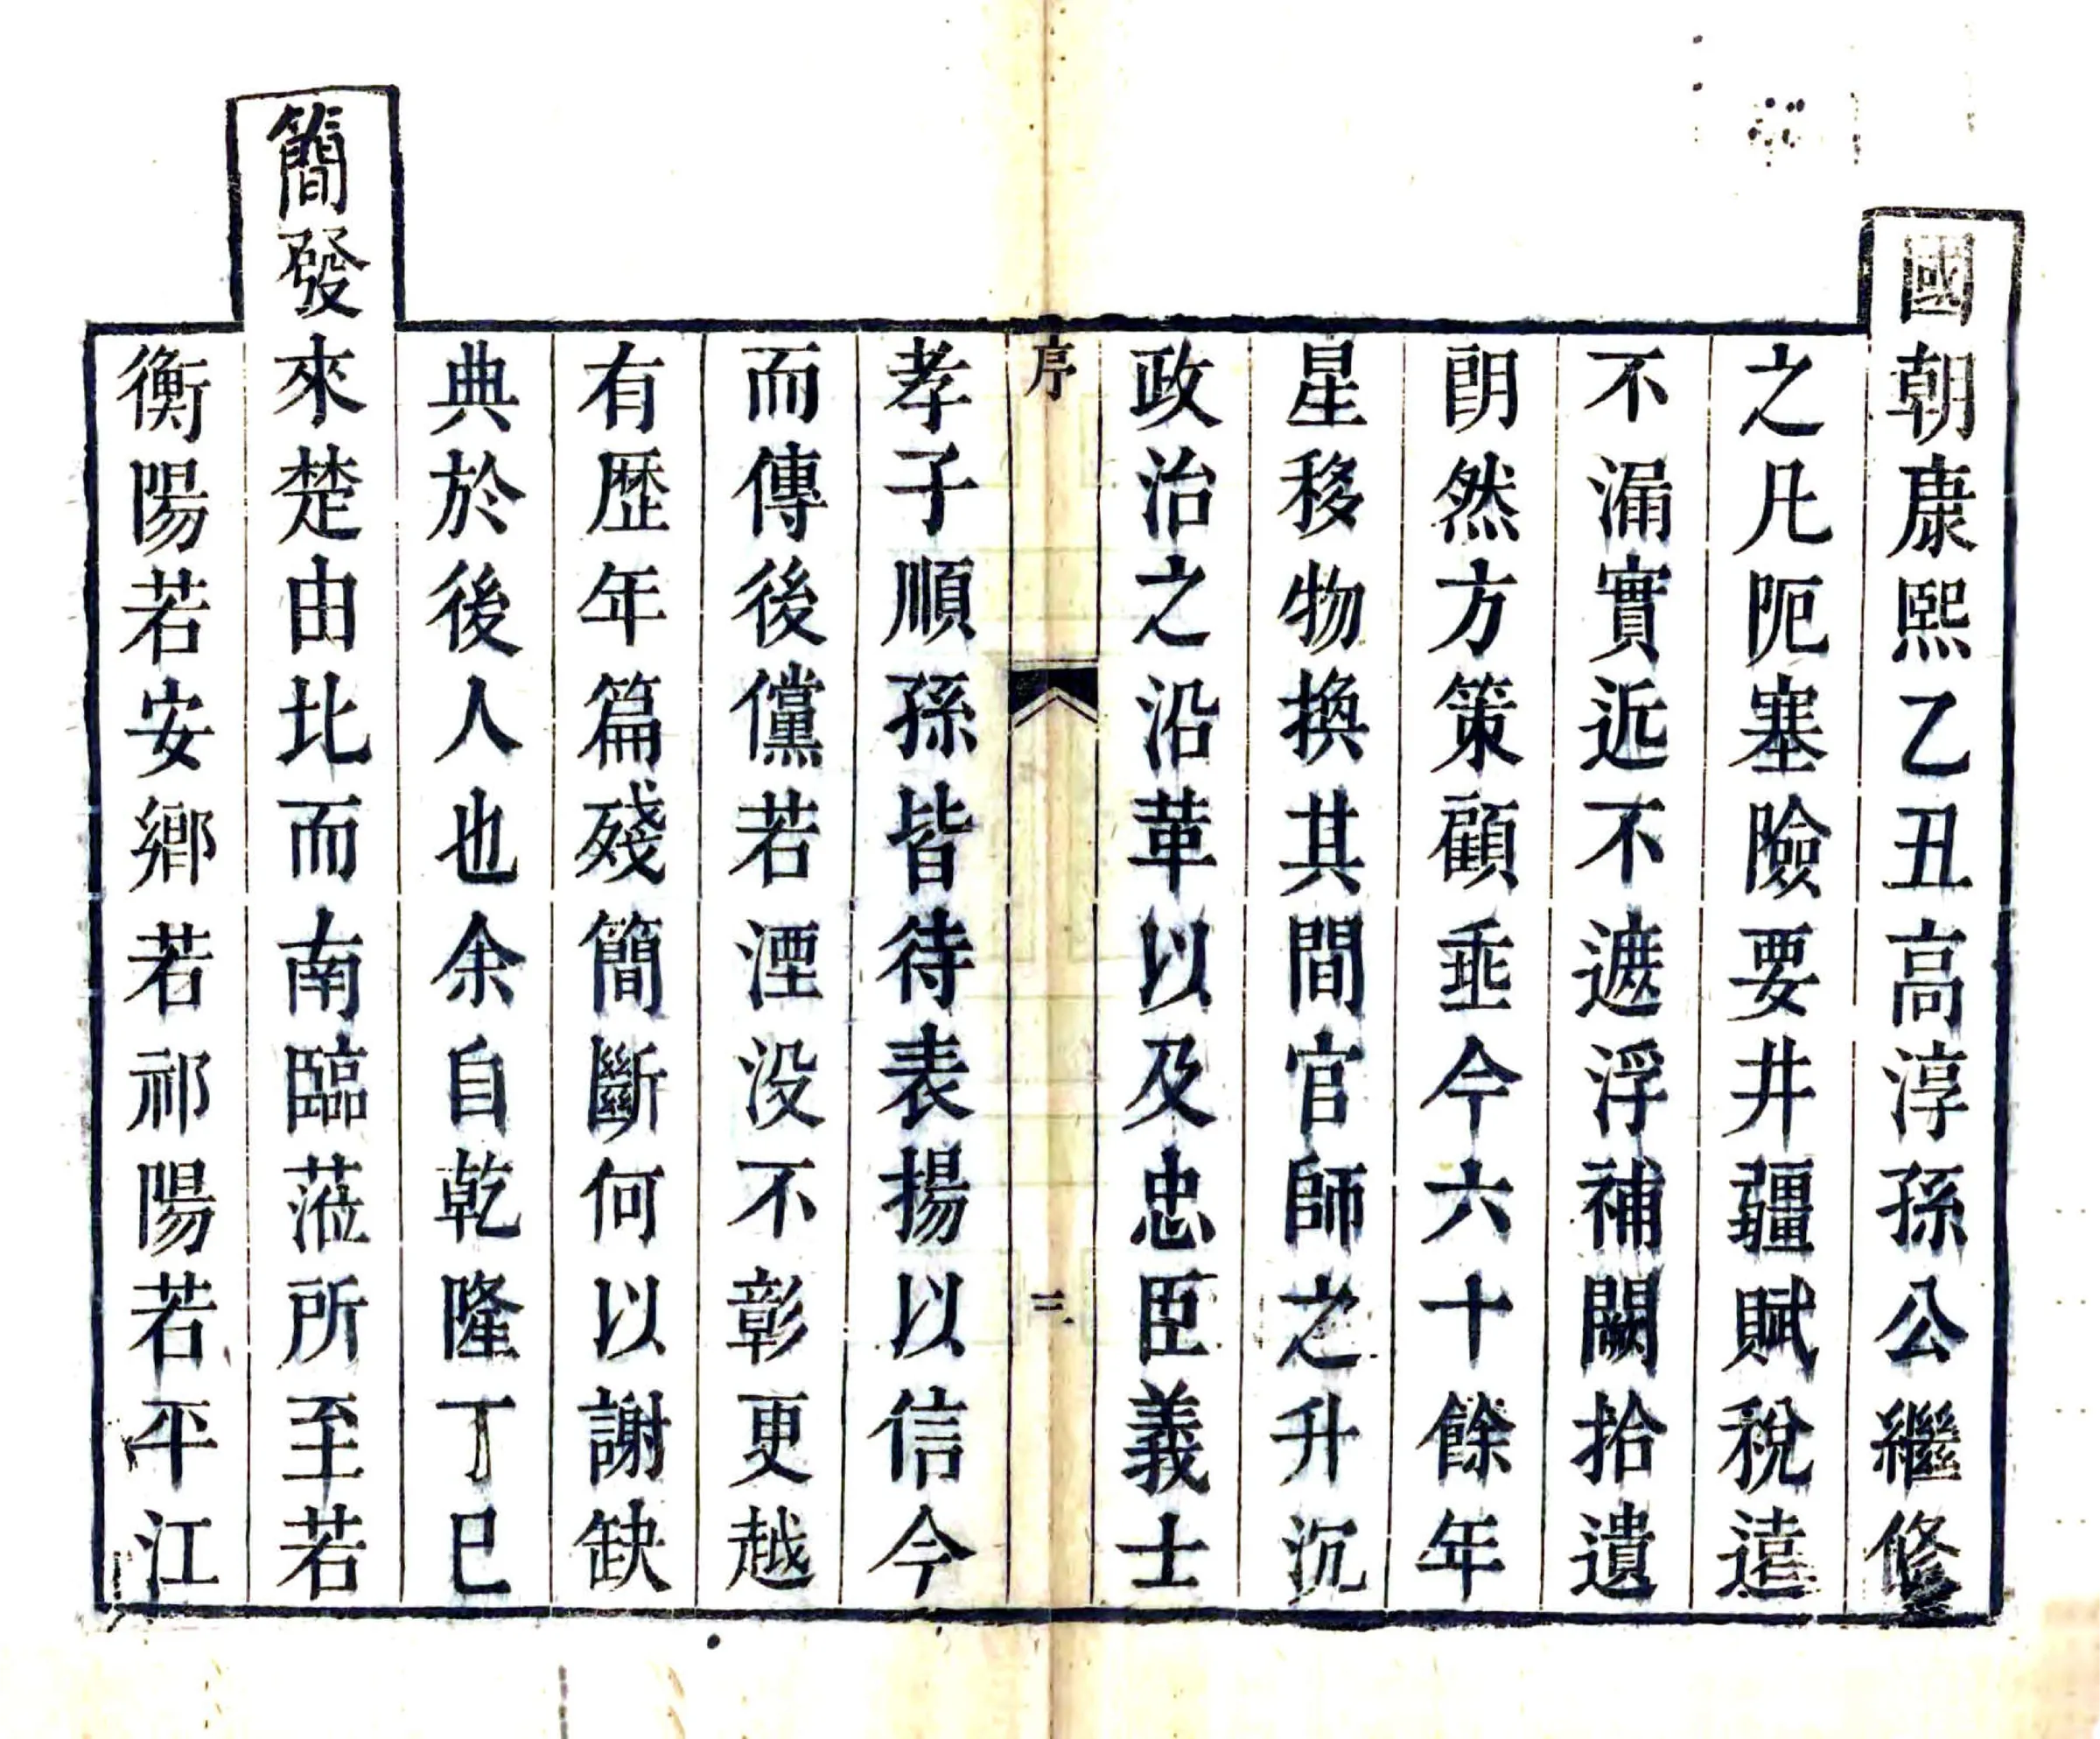 國朝康熙乙丑高淳孫公繼修
之凡阨塞險要井疆賦稅遠
不漏實近不遮浮補闕拾遺
朗然方策顧垂今六十餘年
星移物換其間官師之升沉
政治之沿革以及忠臣義士
序
二
孝子順孫皆待表揚以信今
而傳後儻若湮没不彰更越
有歷年篇殘簡斷何以謝缺
典於後人也余自乾隆丁巳
簡發來楚由北而南臨蒞所至若
衡陽若安鄉若祁陽若平江